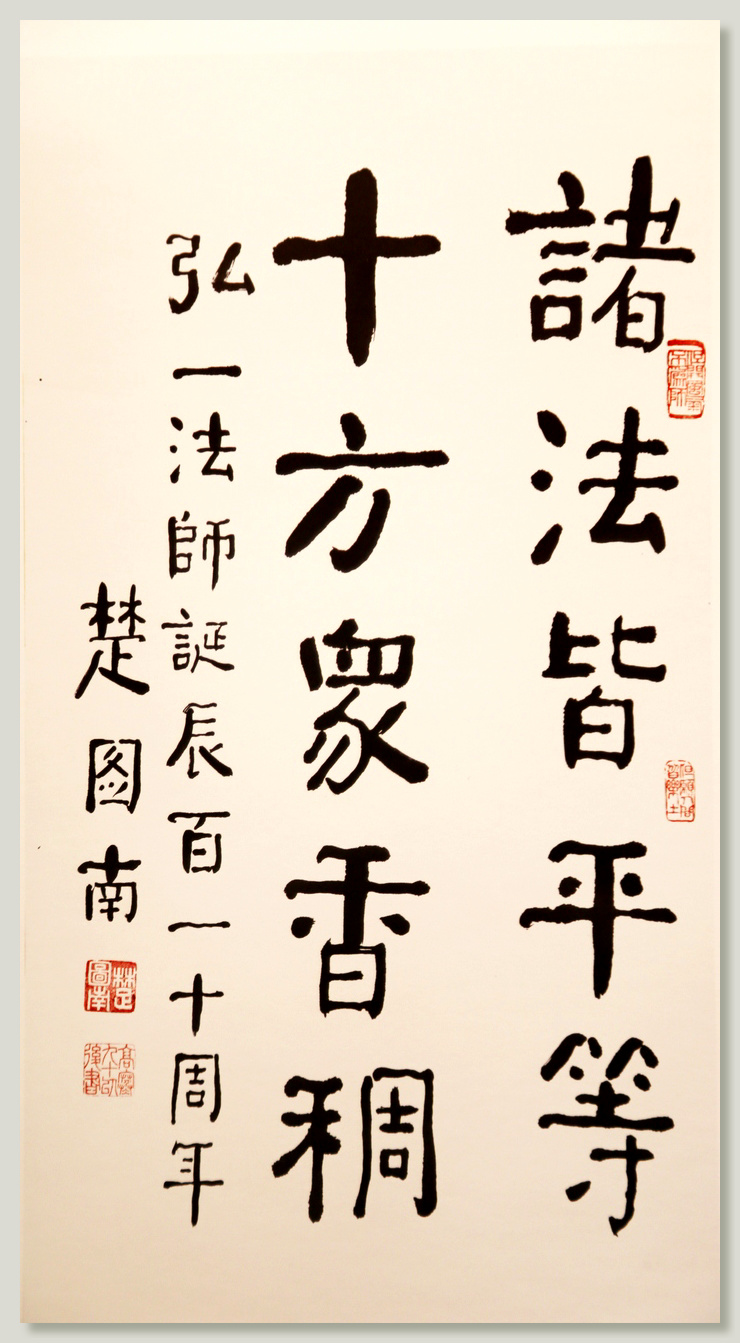 諸法皆平等
十方衆香稠
弘一法師誕辰百一十周年
楚图南
楚圖南